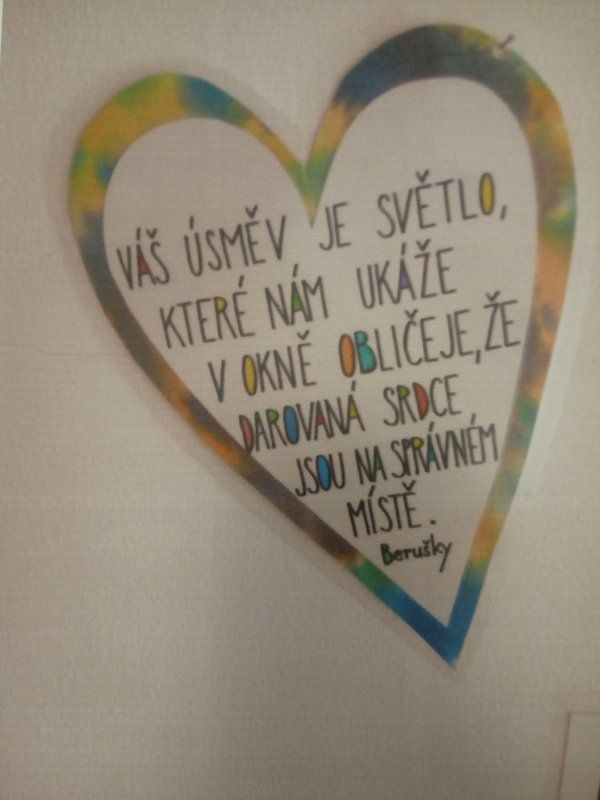 VÁŠ ÚSMĚV JE SVĚTLO,
KTERÉ NÁM UKÁŽE
V OKNĚ OBLIČEJE, ŽE
DAROVANÁ SRDCE
JSOU NA SPRÁVNÉM
MÍSTĚ.
Berušky